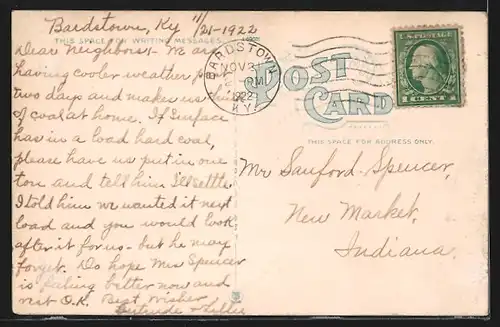 Bardstown, Ky 11/21-1922
THIS SPACE FOR WRITING MESSAGES
Dear Neighbors:- We are
having cooler weather for
two days and makes us think
of coal at home. If Surface
has in a load hard coal,
please have us put in one
ton and tell him I'll settle
I told him we wanted it next
load and you would look
after it for us - but he may
forget. Do hope Mrs Spencer
is feeling better now and
rest O.K. Best wishes
Gertrude &
BARDSTOWN
NOV 21
PM
1922
KY.
POST
CARD
U.S. POSTAGE
1 CENT 1
THIS SPACE FOR ADDRESS ONLY.
Mr Sanford Spencer,
New Market,
Indiana.